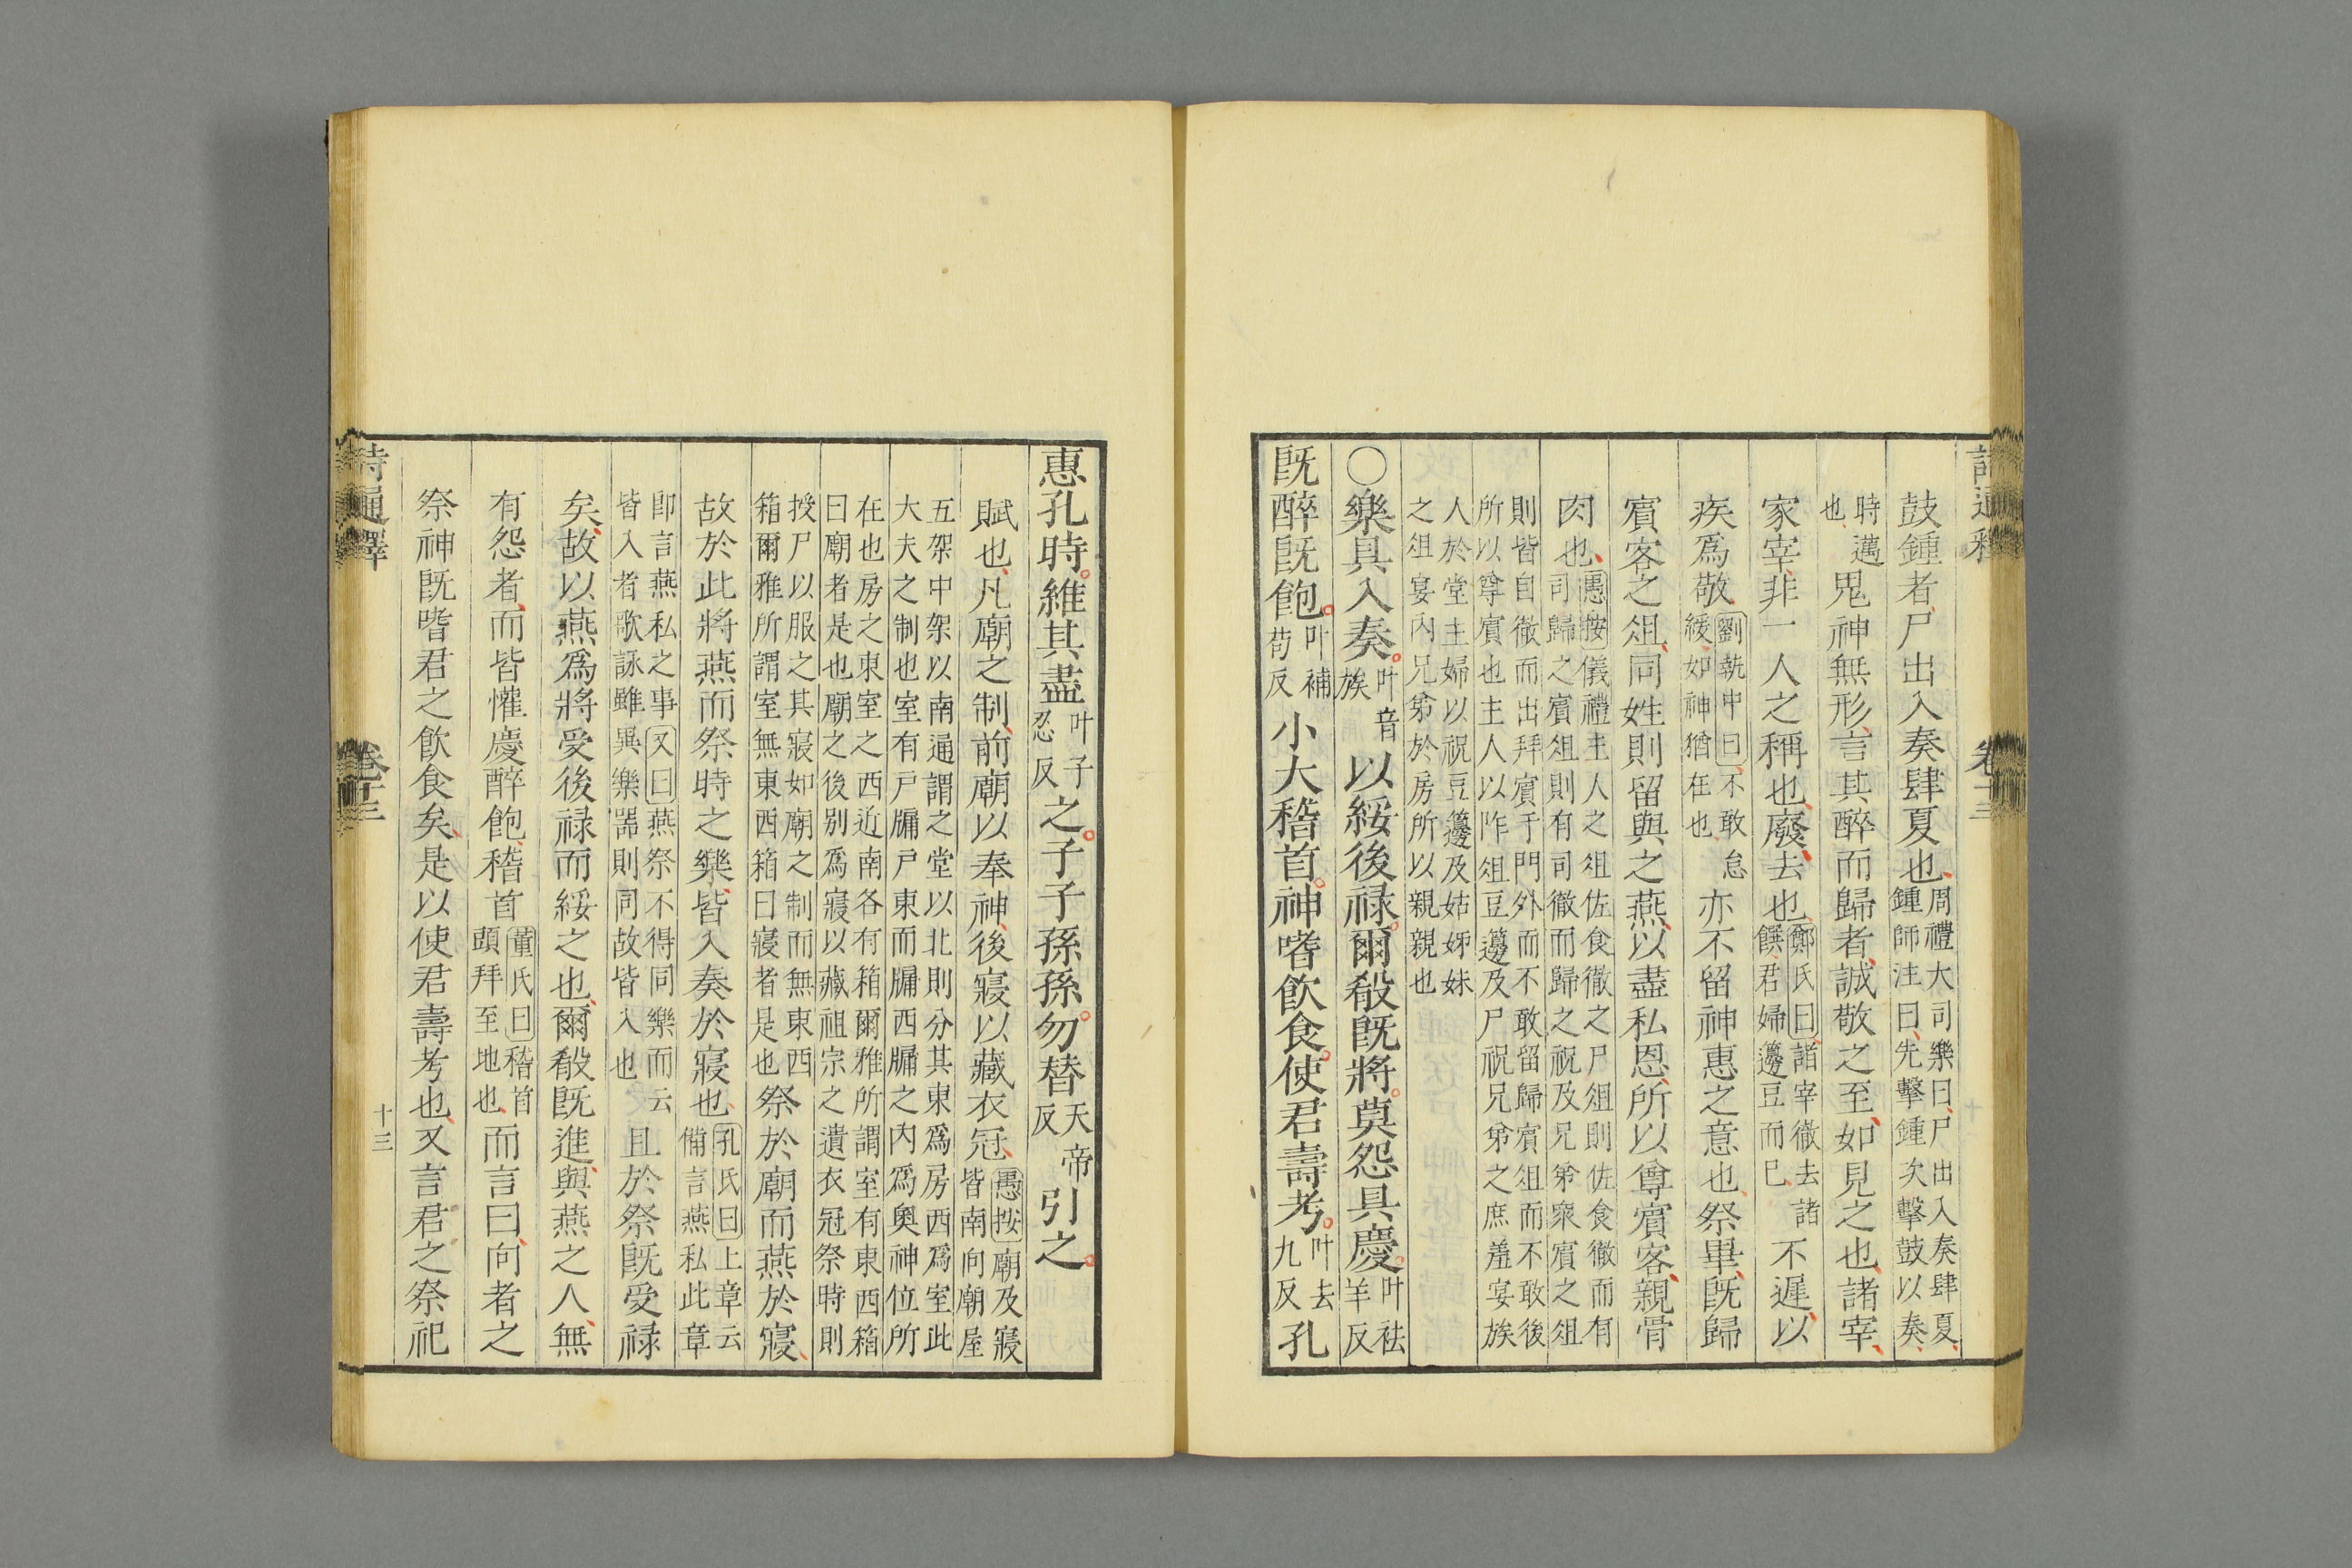 鼓鍾者尸出入奏肆夏也周禮大司樂曰尸出入奏肆夏鍾師注曰先擊鍾次擊鼓以奏
時邁也鬼神無形言其醉而歸者誠敬之至如見之也諸宰
家宰非一人之稱也廢去也鄭氏曰諸宰徹去諸饌君婦籩豆而已不遲以
疾爲敬劉執中曰不敢怠緩如神猶在也亦不留神惠之意也祭畢既歸
賓客之俎同姓則留與之燕以盡私恩所以尊賓客親骨
肉也愚按儀禮主人之俎佐食徹之尸俎則佐食徹而有司歸之賓俎則有司徹而歸之祝及兄弟衆賓之俎
則皆自徹而出拜賓于門外而不敢留歸賓俎而不敢後所以尊賓也主人以阼俎豆籩及尸祝兄弟之庶羞宴族
人於堂主婦以祝豆籩及姑姊妹之俎宴內兄弟於房所以親親也
○樂具入奏叶音族以綏後祿爾殽既將莫怨具慶叶袪羊反
既醉既飽叶補苟反小大稽首神嗜飲食使君壽考叶去九反孔
惠孔時維其盡叶子忍反之子子孫孫勿替天帝反引之
賦也凡廟之制前廟以奉神後寢以藏衣冠愚按廟及寢皆南向廟屋
五架中架以南通謂之堂以北則分其東爲房西爲室此大夫之制也室有戶牖戶東而牖西牖之內爲奧神位所
在也房之東室之西近南各有箱爾雅所謂室有東西箱曰廟者是也廟之後別爲寢以藏祖宗之遺衣冠祭時則
授尸以服之其寢如廟之制而無東西箱爾雅所謂室無東西箱曰寢者是也祭於廟而燕於寢
故於此將燕而祭時之樂皆入奏於寢也孔氏曰上章云備言燕私此章
即言燕私之事又曰燕祭不得同樂而云皆入者歌詠雖異樂器則同故皆入也且於祭既受祿
矣故以燕爲將受後祿而綏之也爾殽既進與燕之人無
有怨者而皆懽慶醉飽稽首董氏曰稽首頭拜至地也而言曰向者之
祭神既嗜君之飲食矣是以使君壽考也又言君之祭祀
詩通釋
卷十三
十三